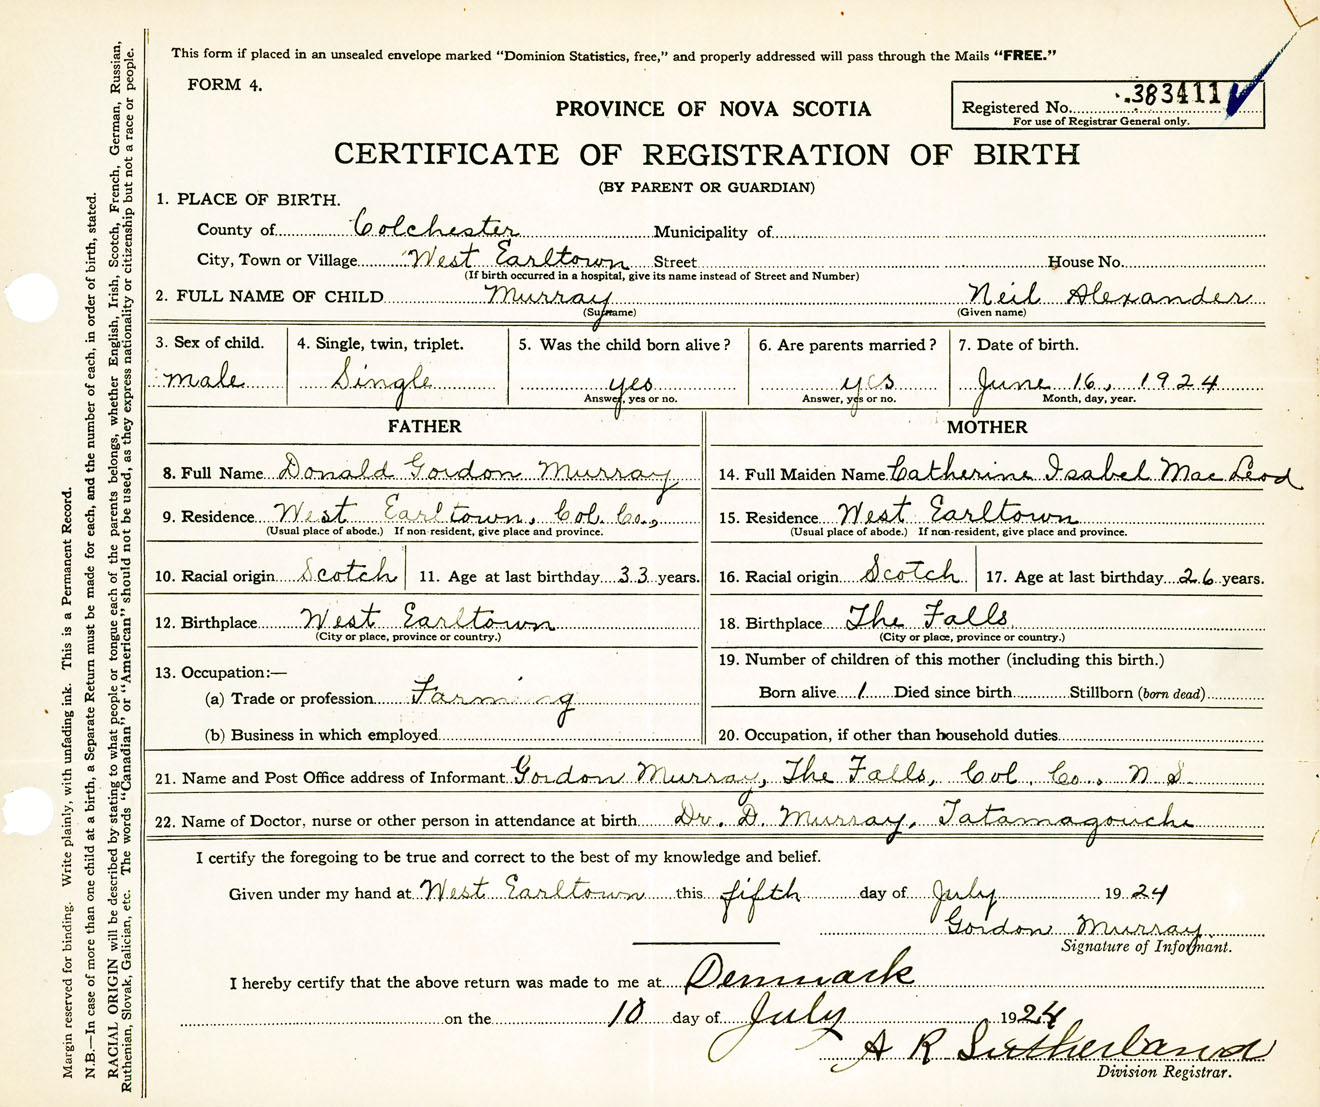 This form if placed in an unsealed envelope marked "Dominion Statistics, free," and properly addressed will pass through the Mails "FREE."
FORM 4.
PROVINCE OF NOVA SCOTIA
Registered No. 383411
For use of Registrar General only.
CERTIFICATE OF REGISTRATION OF BIRTH
(BY PARENT OR GUARDIAN)
1. PLACE OF BIRTH.
County of Colchester Municipality of
City, Town or Village West Earltown Street House No.
(If birth occurred in a hospital, give its name instead of Street and Number)
2. FULL NAME OF CHILD Murray Neil Alexander
(Surname) (Given name)
3. Sex of child. 4. Single, twin, triplet. 5. Was the child born alive? 6. Are parents married? 7. Date of birth.
male Single yes yes June 16, 1924
Answer, yes or no. Answer, yes or no. Month, day, year.
FATHER MOTHER
8. Full Name Donald Gordon Murray 14. Full Maiden Name Catherine Isabel MacLeod
9. Residence West Earltown, Col. Co., 15. Residence West Earltown
(Usual place of abode.) If non-resident, give place and province. (Usual place of abode.) If non-resident, give place and province.
10. Racial origin Scotch 11. Age at last birthday 33 years. 16. Racial origin Scotch 17. Age at last birthday 26 years.
12. Birthplace West Earltown 18. Birthplace The Falls
(City or place, province or country.) (City or place, province or country.)
13. Occupation:— 19. Number of children of this mother (including this birth.)
(a) Trade or profession Farming Born alive 1 Died since birth Stillborn (born dead)
(b) Business in which employed 20. Occupation, if other than household duties
21. Name and Post Office address of Informant Gordon Murray, The Falls, Col. Co., N S
22. Name of Doctor, nurse or other person in attendance at birth Dr. D. Murray, Tatamagouche
I certify the foregoing to be true and correct to the best of my knowledge and belief.
Given under my hand at West Earltown this fifth day of July 1924
Gordon Murray
Signature of Informant.
I hereby certify that the above return was made to me at Denmark
on the 10 day of July 1924
A R Sutherland
Division Registrar.
Margin reserved for binding. Write plainly, with unfading ink. This is a Permanent Record.
N.B.—In case of more than one child at a birth, a Separate Return must be made for each, and the number of each, in order of birth, stated.
RACIAL ORIGIN will be described by stating to what people or tongue each of the parents belongs, whether English, Irish, Scotch, French, German, Russian,
Ruthenian, Slovak, Galician, etc. The words "Canadian" or "American" should not be used, as they express nationality or citizenship but not a race or people.